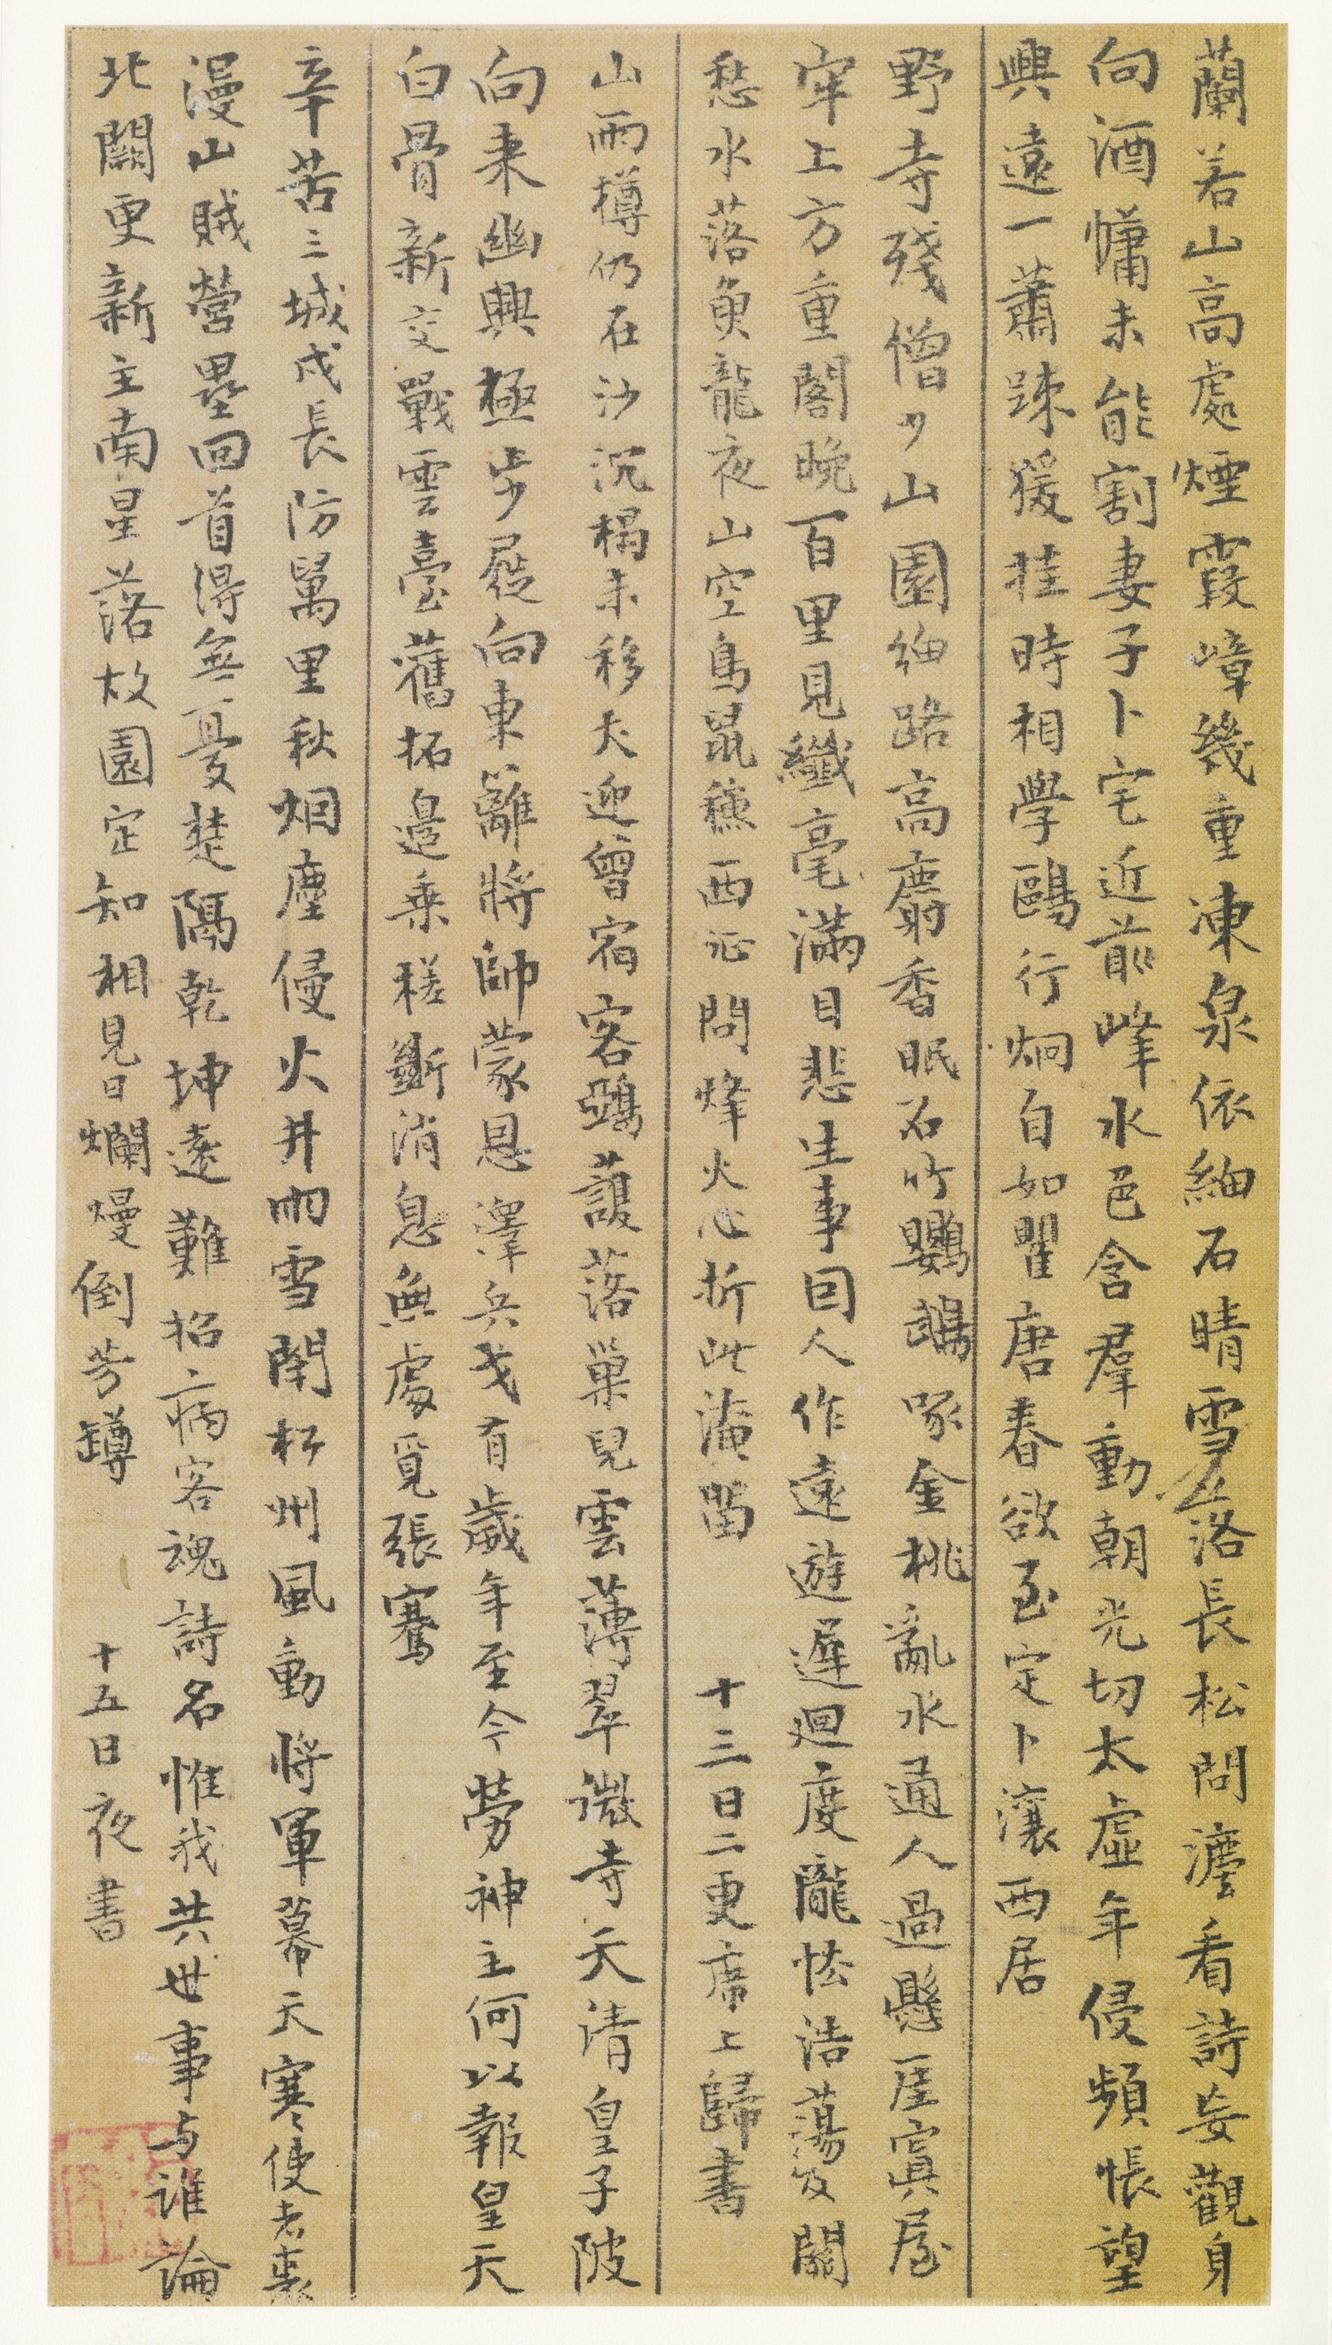 蘭若山高處煙霞嶂幾重凍泉依細石晴雪落長松問灋看詩妄觀身
向酒慵未能割妻子卜宅近前峰水色含羣動朝光切太虛年侵頻悵望
興遠一蕭疎猨挂時相學鷗行炯自如瞿唐春欲至定卜瀼西居
野寺殘僧少山園細路高麝香眠石竹鸚鵡啄金桃亂水通人過懸崖寘屋
牢上方重閣晚百里見纖毫滿目悲生事因人作遠遊遲迴度隴怯浩蕩及關
愁水落魚龍夜山空鳥鼠秋西征問烽火心折此淹留　十三日二更席上歸書
山雨樽仍在沙沉榻未移犬迎曾宿客鵶護落巢兒雲薄翠微寺天清皇子陂
向來幽興極步屣向東籬將帥蒙恩澤兵戈有歲年至今勞神主何以報皇天
白骨新交戰雲臺舊拓邊乘槎斷消息無處覓張騫
辛苦三城戍長防萬里秋烟塵侵火井雨雪閉松州風動將軍幕天寒使者裘
漫山賊營壘回首得無憂楚隔乾坤遠難招病客魂詩名惟我共世事与誰論
北闕更新主南星落故園定知相見日爛熳倒芳罇　十五日夜書